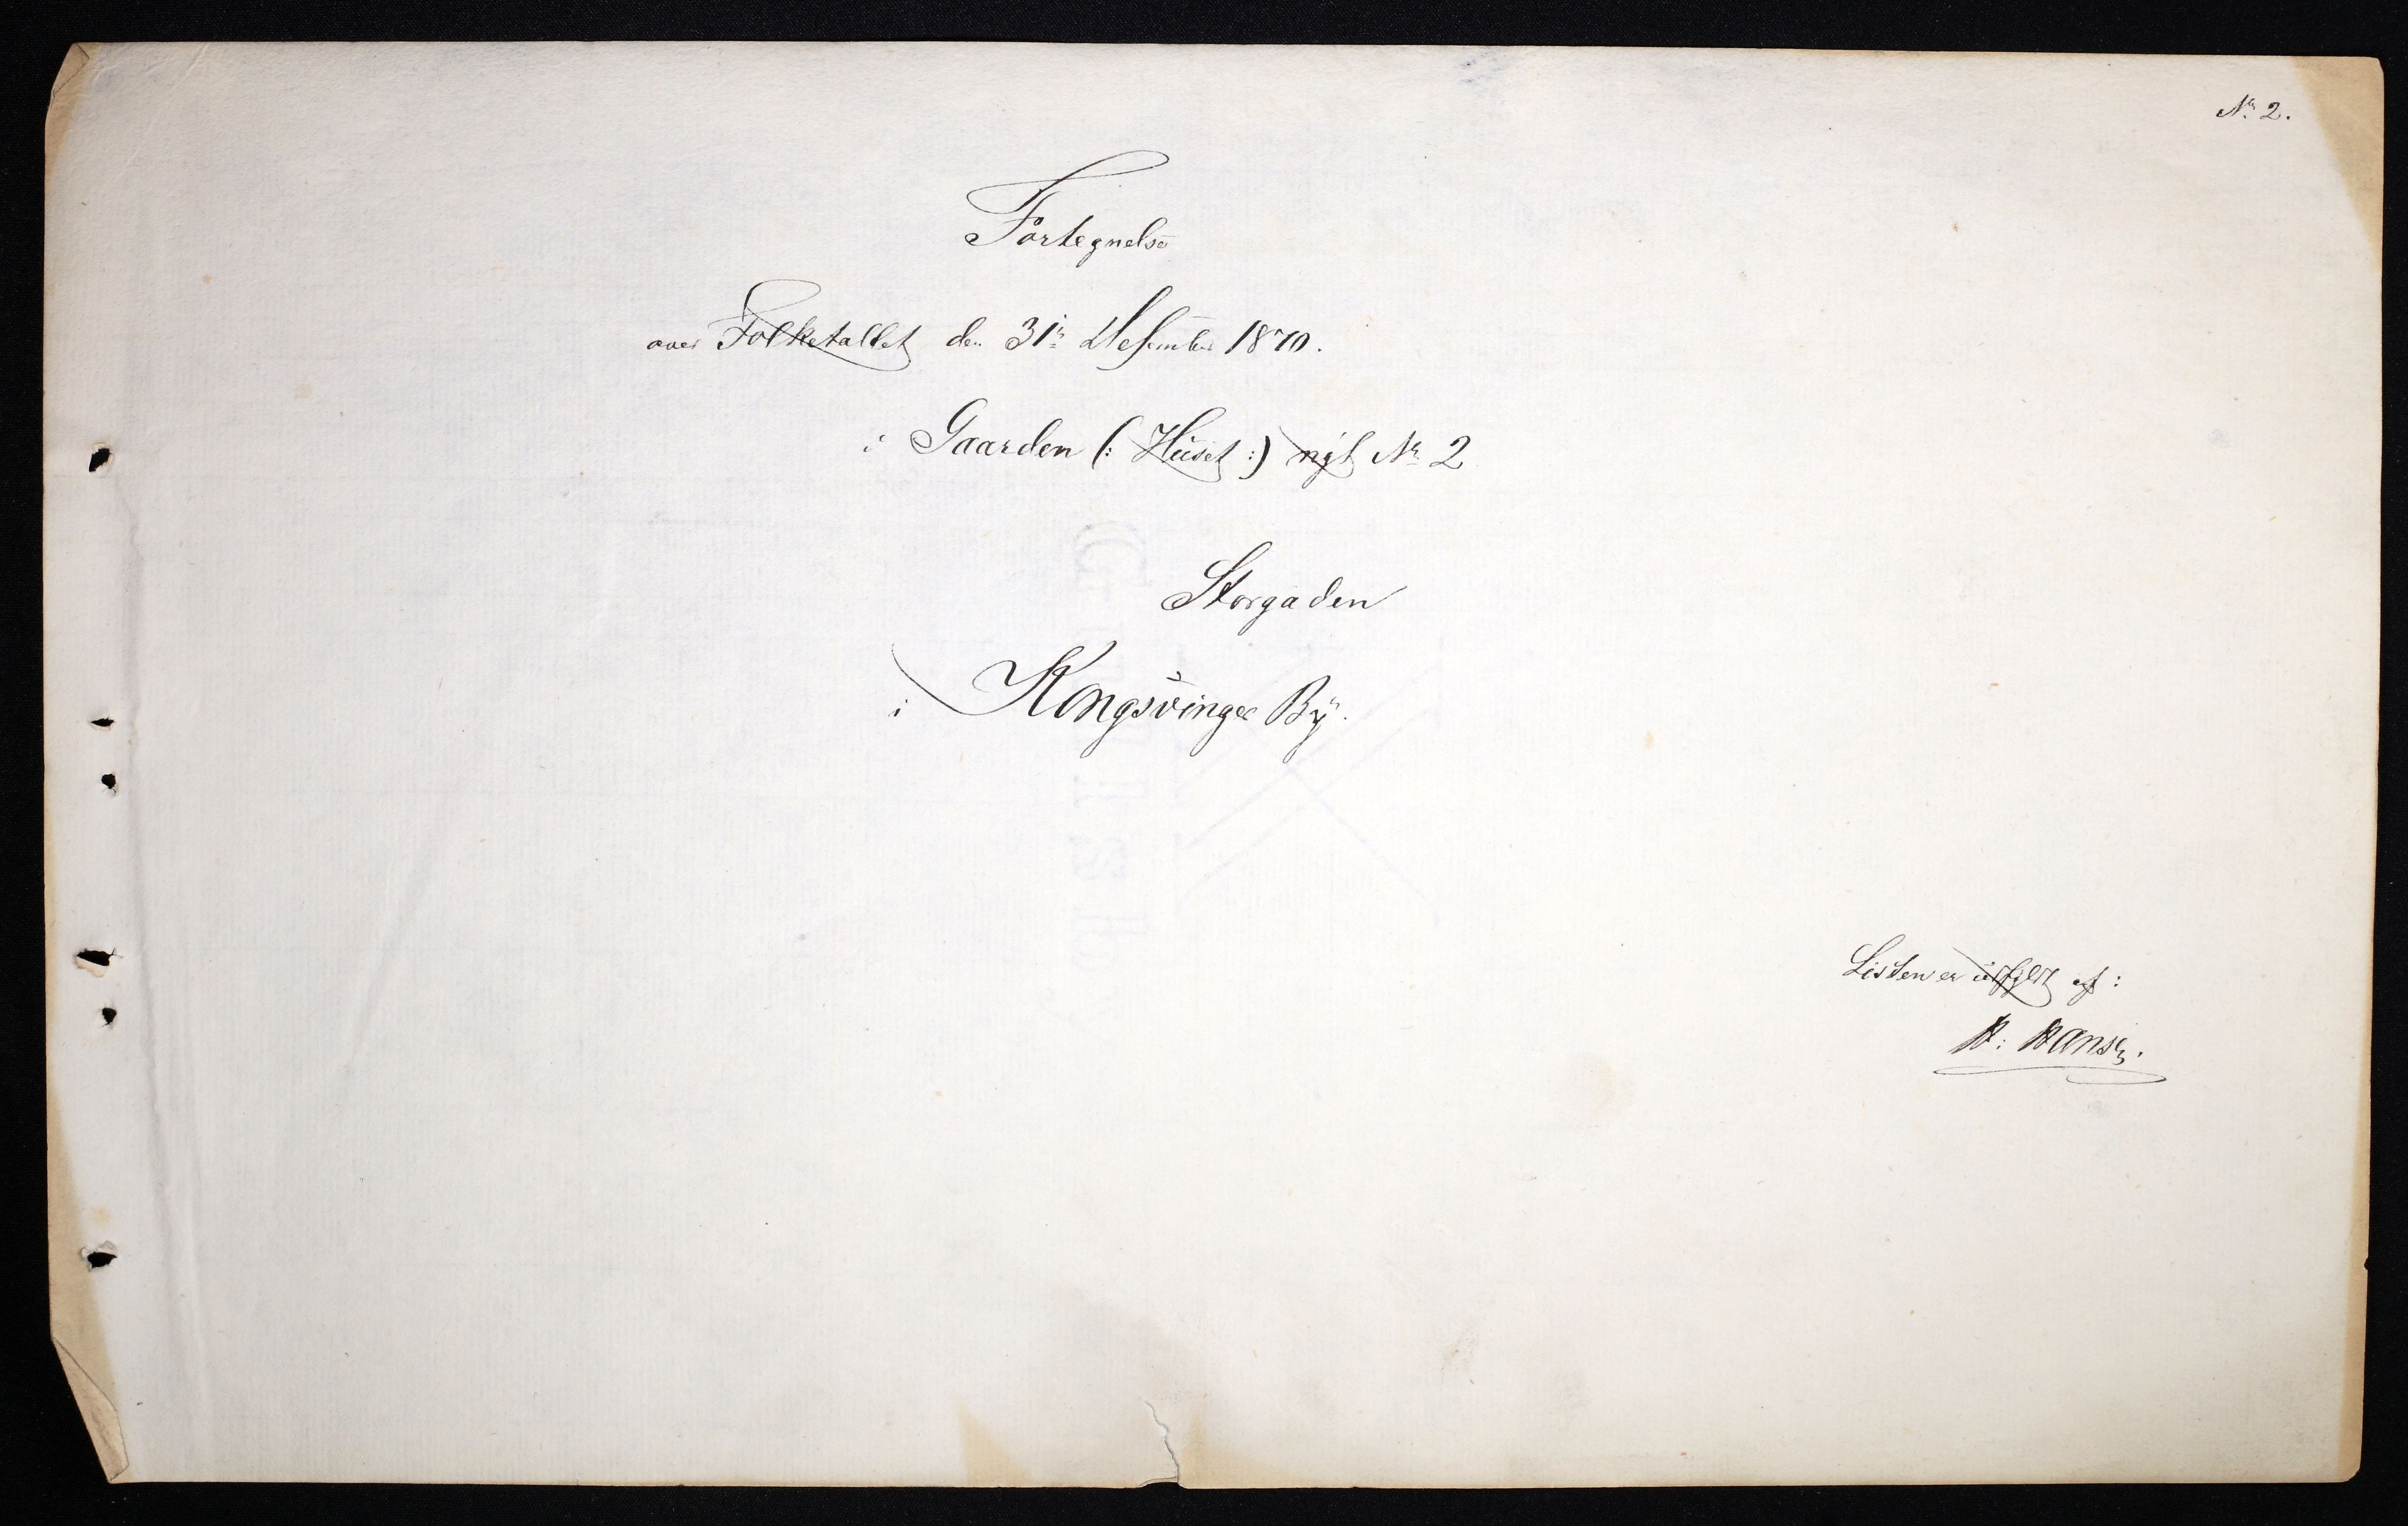 No. 2.
Fortegnelse
over Folketallet den 31te Desember 1870.
i Gaarden (: Huset :) nyt No. 2
Storgaden
i Kongsvinger By.
Listen er udfyldt af:
H. Hansen.